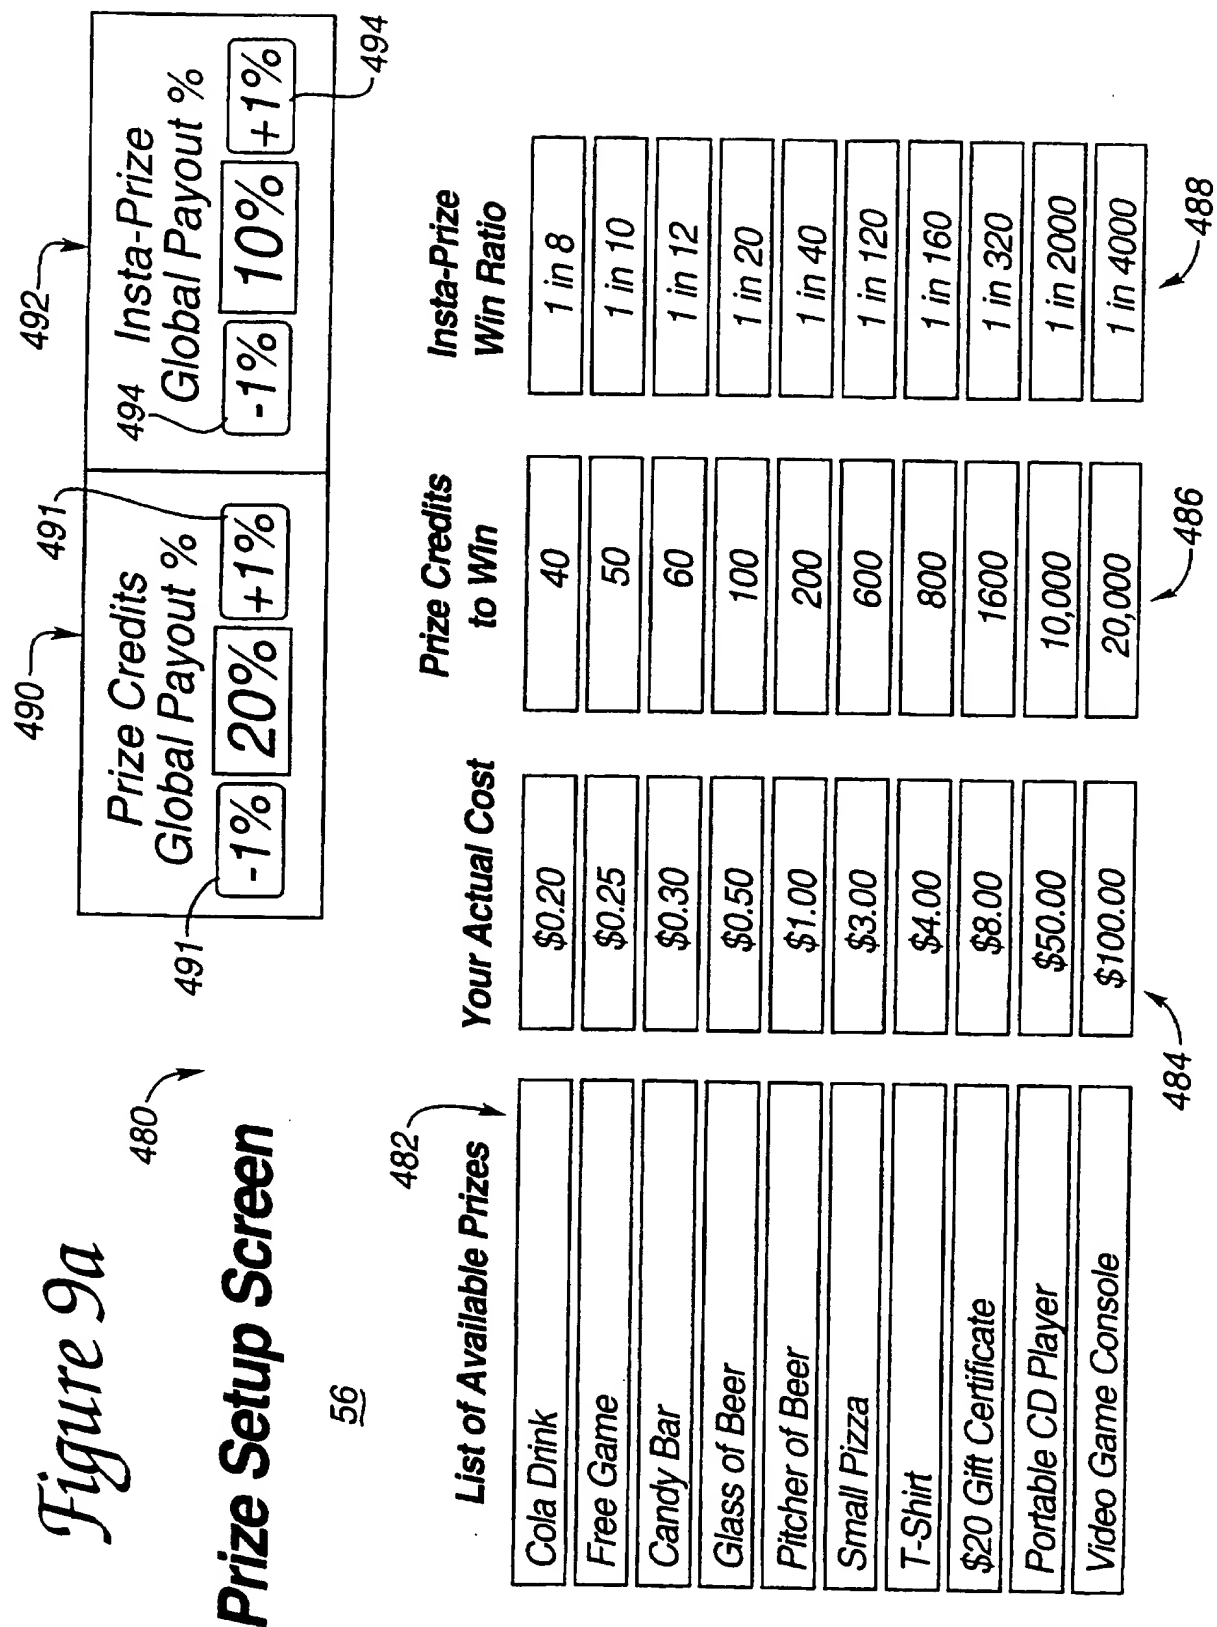 Figure 9a
480
Prize Setup Screen
56
490
491
492
Prize Credits
Global Payout %
-1% 20% +1%
491
494
Insta-Prize
Global Payout %
-1% 10% +1%
494
482
List of Available Prizes Your Actual Cost Prize Credits to Win Insta-Prize Win Ratio
Cola Drink $0.20 40 1 in 8
Free Game $0.25 50 1 in 10
Candy Bar $0.30 60 1 in 12
Glass of Beer $0.50 100 1 in 20
Pitcher of Beer $1.00 200 1 in 40
Small Pizza $3.00 600 1 in 120
T-Shirt $4.00 800 1 in 160
$20 Gift Certificate $8.00 1600 1 in 320
Portable CD Player $50.00 10,000 1 in 2000
Video Game Console $100.00 20,000 1 in 4000
484
486
488